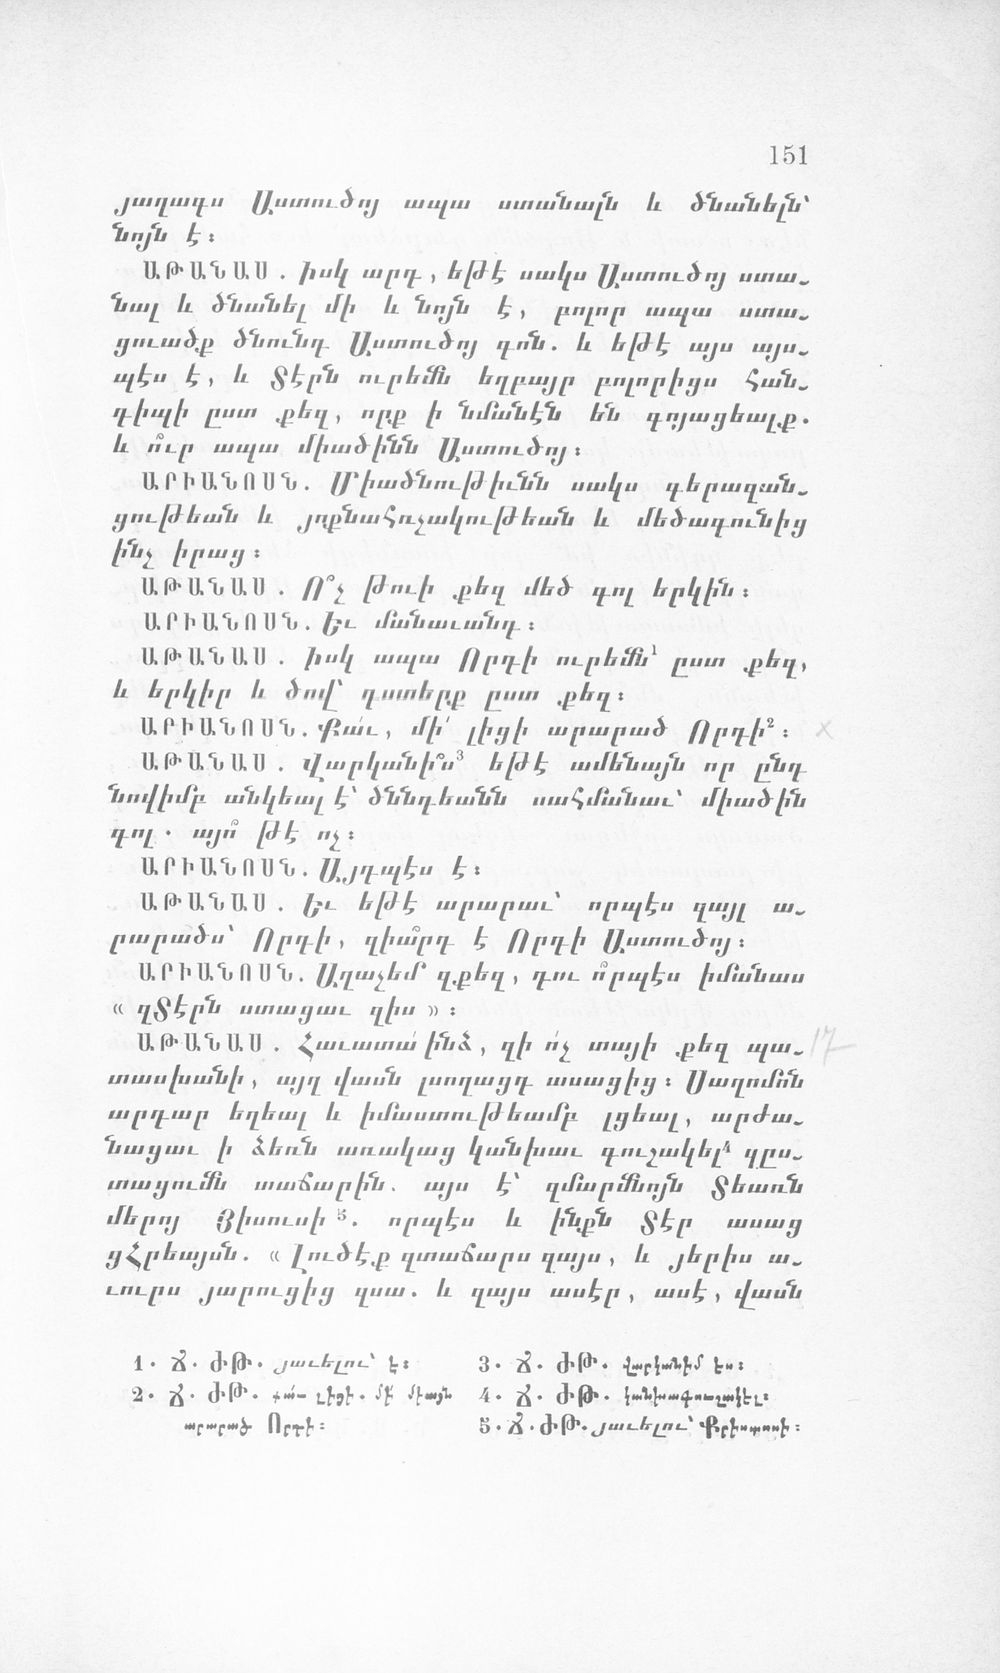 151
յաղագս Աստուծոյ ապա ստանալն և ծնանելն՝
նոյն է։
ԱԹԱՆԱՍ. Իսկ արդ, եթէ սակս Աստուծոյ ստա-
նալ և ծնանել մի և նոյն է, բոլոր ապա ստա-
ցուածք ծնունդ Աստուծոյ գոն. և եթէ այս այս-
պէս է, և Տէրն ուրեմն եղբայր բոլորիցս հան-
դիպի ըստ քեզ, որք ի նմանէն են գոյացեալք.
և ո՞ւր ապա միածինն Աստուծոյ։
ԱՐԻԱՆՈՍՆ. Միածնութիւնն սակս գերազան-
ցութեան և յոքնահռչակութեան և մեծագունից
ինչ իրաց։
ԱԹԱՆԱՍ. Ո՞չ թուի քեզ մեծ գոլ երկին։
ԱՐԻԱՆՈՍՆ. Եւ մանաւանդ։
ԱԹԱՆԱՍ. Իսկ ապա Որդի ուրեմն¹ ըստ քեզ,
և երկիր և ծով՝ դստերք ըստ քեզ։
ԱՐԻԱՆՈՍՆ. Քա՛ւ, մի՛ լիցի արարած Որդի²։
ԱԹԱՆԱՍ. Վարկանի՞ս³ եթէ ամենայն որ ընդ
նովիմբ անկեալ է՝ ծննդեանն սահմանաւ՝ միածին
գոլ. այո՞ թէ ոչ։
ԱՐԻԱՆՈՍՆ. Այդպէս է։
ԱԹԱՆԱՍ. Եւ եթէ արարաւ՝ որպէս զայլ ա-
րարածս՝ Որդի, զիա՞րդ է Որդի Աստուծոյ։
ԱՐԻԱՆՈՍՆ. Աղաչեմ զքեզ, դու ո՞րպէս իմանաս
« զՏէրն ստացաւ զիս »։
ԱԹԱՆԱՍ. Հաւատա՛ ինձ, զի ո՛չ տայի քեզ պա- 17
տասխանի, այղ վասն լսողացդ ասացից։ Սաղոմոն
արդար եղեալ և իմաստութեամբ լցեալ, արժա-
նացաւ ի ձեռն առակաց կանխաւ գուշակել⁴ զըս-
տացումն տաճարին. այս է՝ զմարմնոյն Տեառն
մերոյ Յիսուսի⁵. որպէս և ինքն Տէր ասաց
ցՀրեայսն. « Լուծէք զտաճարս զայս, և յերիս ա-
ւուրս յարուցից զսա. և զայս ասէր, ասէ, վասն
1. Ճ. ԺԹ. յաւելու՝ է։
2. Ճ. ԺԹ. քա՛ւ լիցի. մի՛ միայն
արարած Որդի։
3. Ճ. ԺԹ. վարկանիմ ես։
4. Ճ. ԺԹ. կանխագուշակել։
5. Ճ. ԺԹ. յաւելու՝ Քրիստոսի։